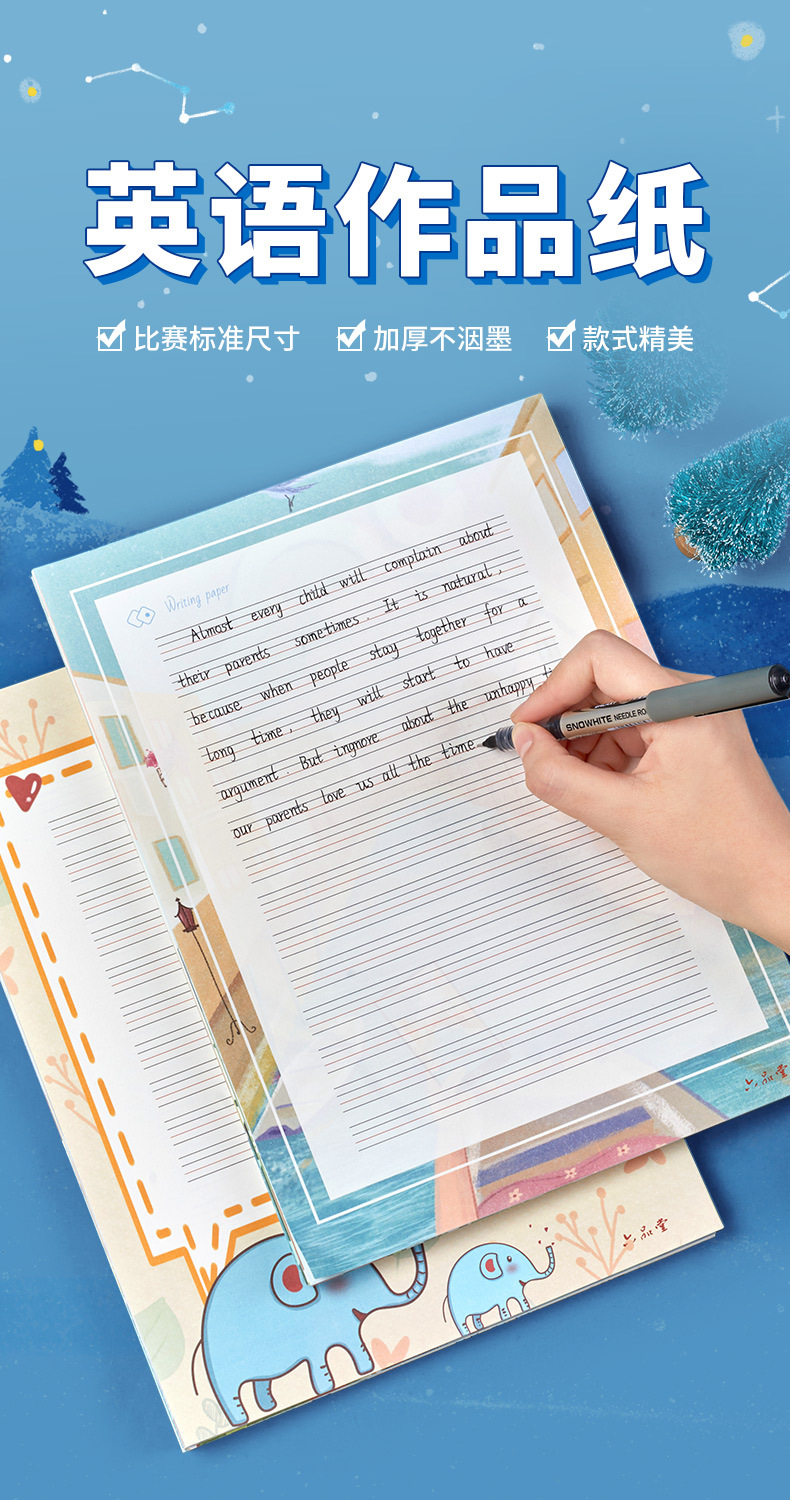 英语作品纸
比赛标准尺寸 加厚不洇墨 款式精美
Writing paper
Almost every child will complain about
their parents sometimes. It is natural,
because when people stay together for a
long time, they will start to have
argument. But ingnore about the unhappy
our parents love us all the time
SNOWHITE NEEDLE
六品堂
六品堂